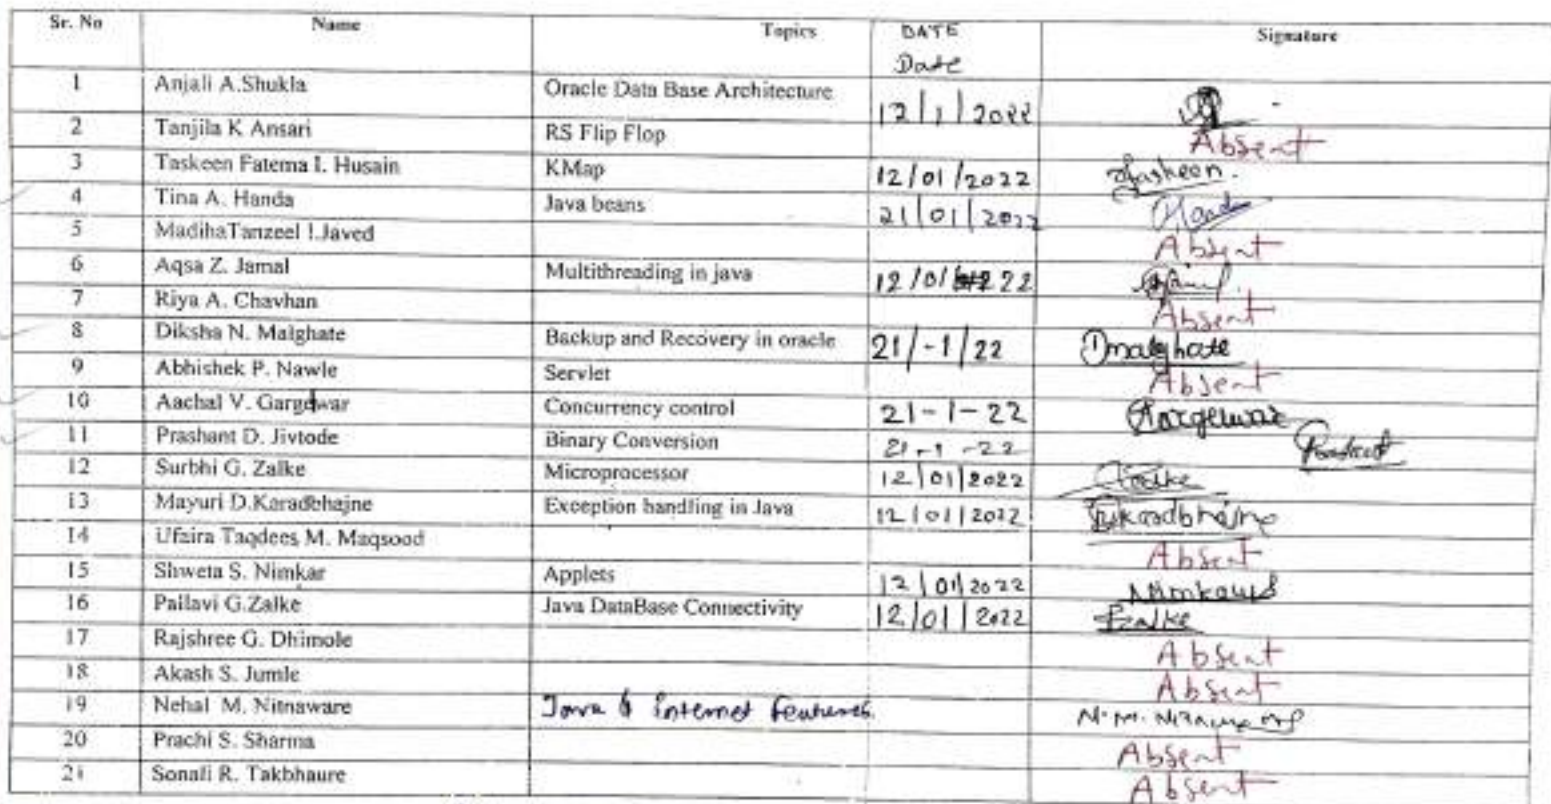 Sr. No Name Topics DATE Signature
Date
1 Anjali A.Shukla Oracle Data Base Architecture 12/1/2022
2 Tanjila K Ansari RS Flip Flop Absent
3 Taskeen Fatema I. Husain KMap 12/01/2022 Taskeen.
4 Tina A. Handa Java beans 21/01/2022
5 MadihaTanzeel I.Javed Absent
6 Aqsa Z. Jamal Multithreading in java 12/01/22
7 Riya A. Chavhan Absent
8 Diksha N. Malghate Backup and Recovery in oracle 21/-1/22 Dmalghate
9 Abhishek P. Nawle Servlet Absent
10 Aachal V. Gargelwar Concurrency control 21-1-22 Aargelwar
11 Prashant D. Jivtode Binary Conversion 21-1-22
12 Surbhi G. Zalke Microprocessor 12/01/2022 Zalke
13 Mayuri D.Karadbhajne Exception handling in Java 12/01/2022
14 Ufaira Taqdees M. Maqsood Absent
15 Shweta S. Nimkar Applets 12/01/2022
16 Pallavi G.Zalke Java DataBase Connectivity 12/01/2022 PZalke
17 Rajshree G. Dhimole Absent
18 Akash S. Jumle Absent
19 Nehal M. Nitnaware Java & Internet features.
20 Prachi S. Sharma Absent
21 Sonali R. Takbhaure Absent